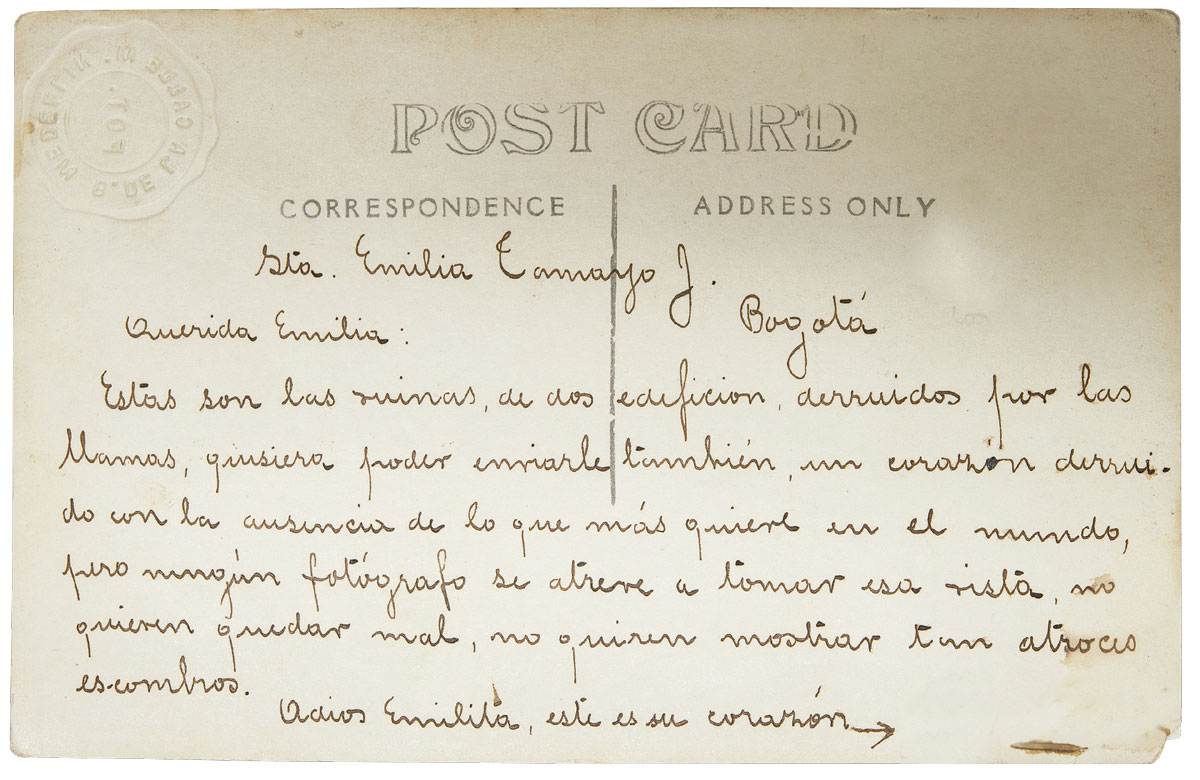 B. DE LA CALLE M. MEDELLIN
FOT.
POST CARD
CORRESPONDENCE
ADDRESS ONLY
Sta. Emilia Tamayo J.
Bogotá
Querida Emilia:
Estas son las ruinas, de dos edificion, derruidos por las
llamas, quisiera poder enviarle también, un corazón derrui-
do con la ausencia de lo que más quiere en el mundo,
pero ningún fotógrafo se atreve a tomar esa vista, no
quieren quedar mal, no quiren mostrar tan atroces
escombros.
Adios Emilita, este es su corazón →